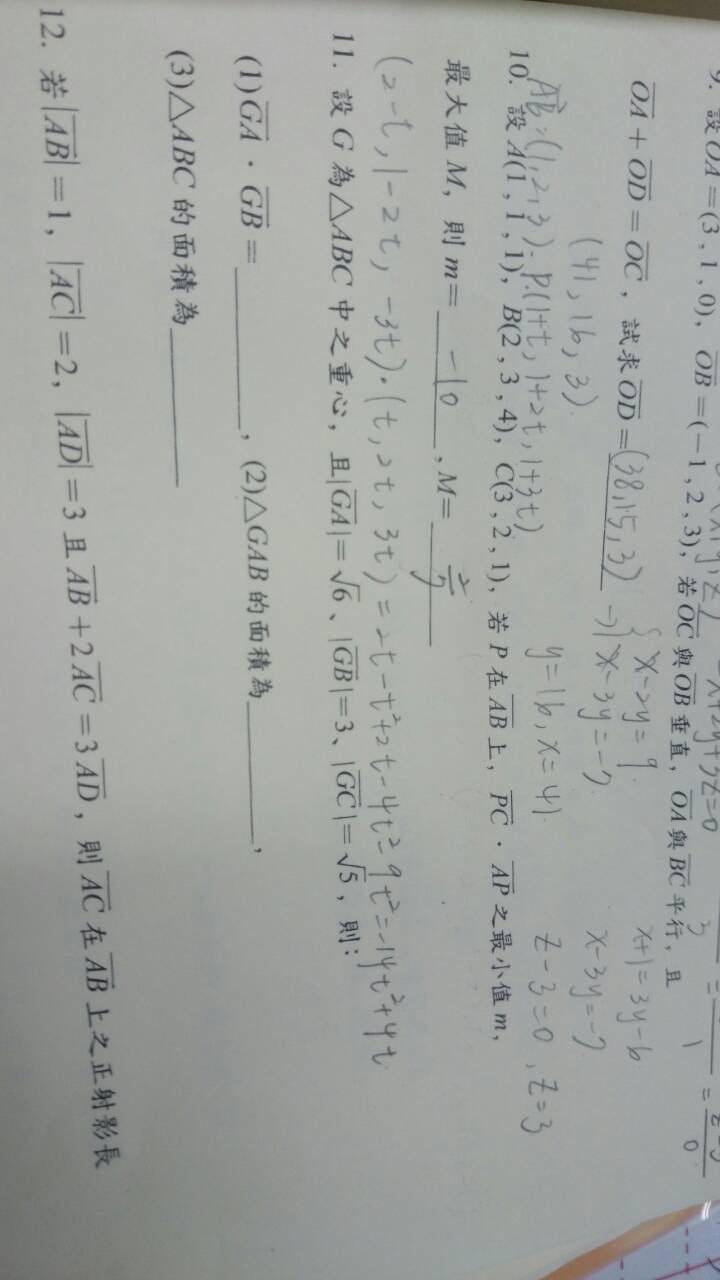 9. 設 OA=(3, 1, 0), OB=(-1, 2, 3), 若 OC 與 OB 垂直, OA 與 BC 平行, 且
x+1=3y-6
{x-2y=9
OA+OD=OC, 試求 OD=(38,15,3) → x-3y=-7
x-3y=-7
(41, 16, 3)
y=16, x=41
z-3=0, z=3
AB:(1,2,3). P.(1+t, 1+2t, 1+3t)
10. 設 A(1, 1, 1), B(2, 3, 4), C(3, 2, 1), 若 P 在 AB 上, PC · AP 之最小值 m,
最大值 M, 則 m= -10, M= 2/7
(2-t, 1-2t, -3t)·(t, 2t, 3t)=2t-t²+2t-4t²-9t²=-14t²+4t
11. 設 G 為△ABC 中之重心, 且|GA|=√6、|GB|=3、|GC|=√5, 則:
(1) GA · GB=________, (2)△GAB 的面積為________,
(3)△ABC 的面積為________
12. 若|AB|=1, |AC|=2, |AD|=3 且 AB+2AC=3AD, 則 AC 在 AB 上之正射影長